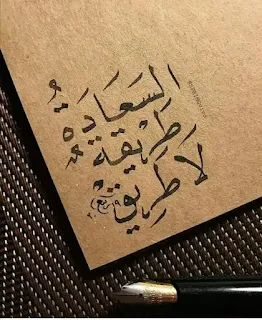 السَّعَادَةُ
طَرِيْقَةٌ
لَا طَرِيقٌ